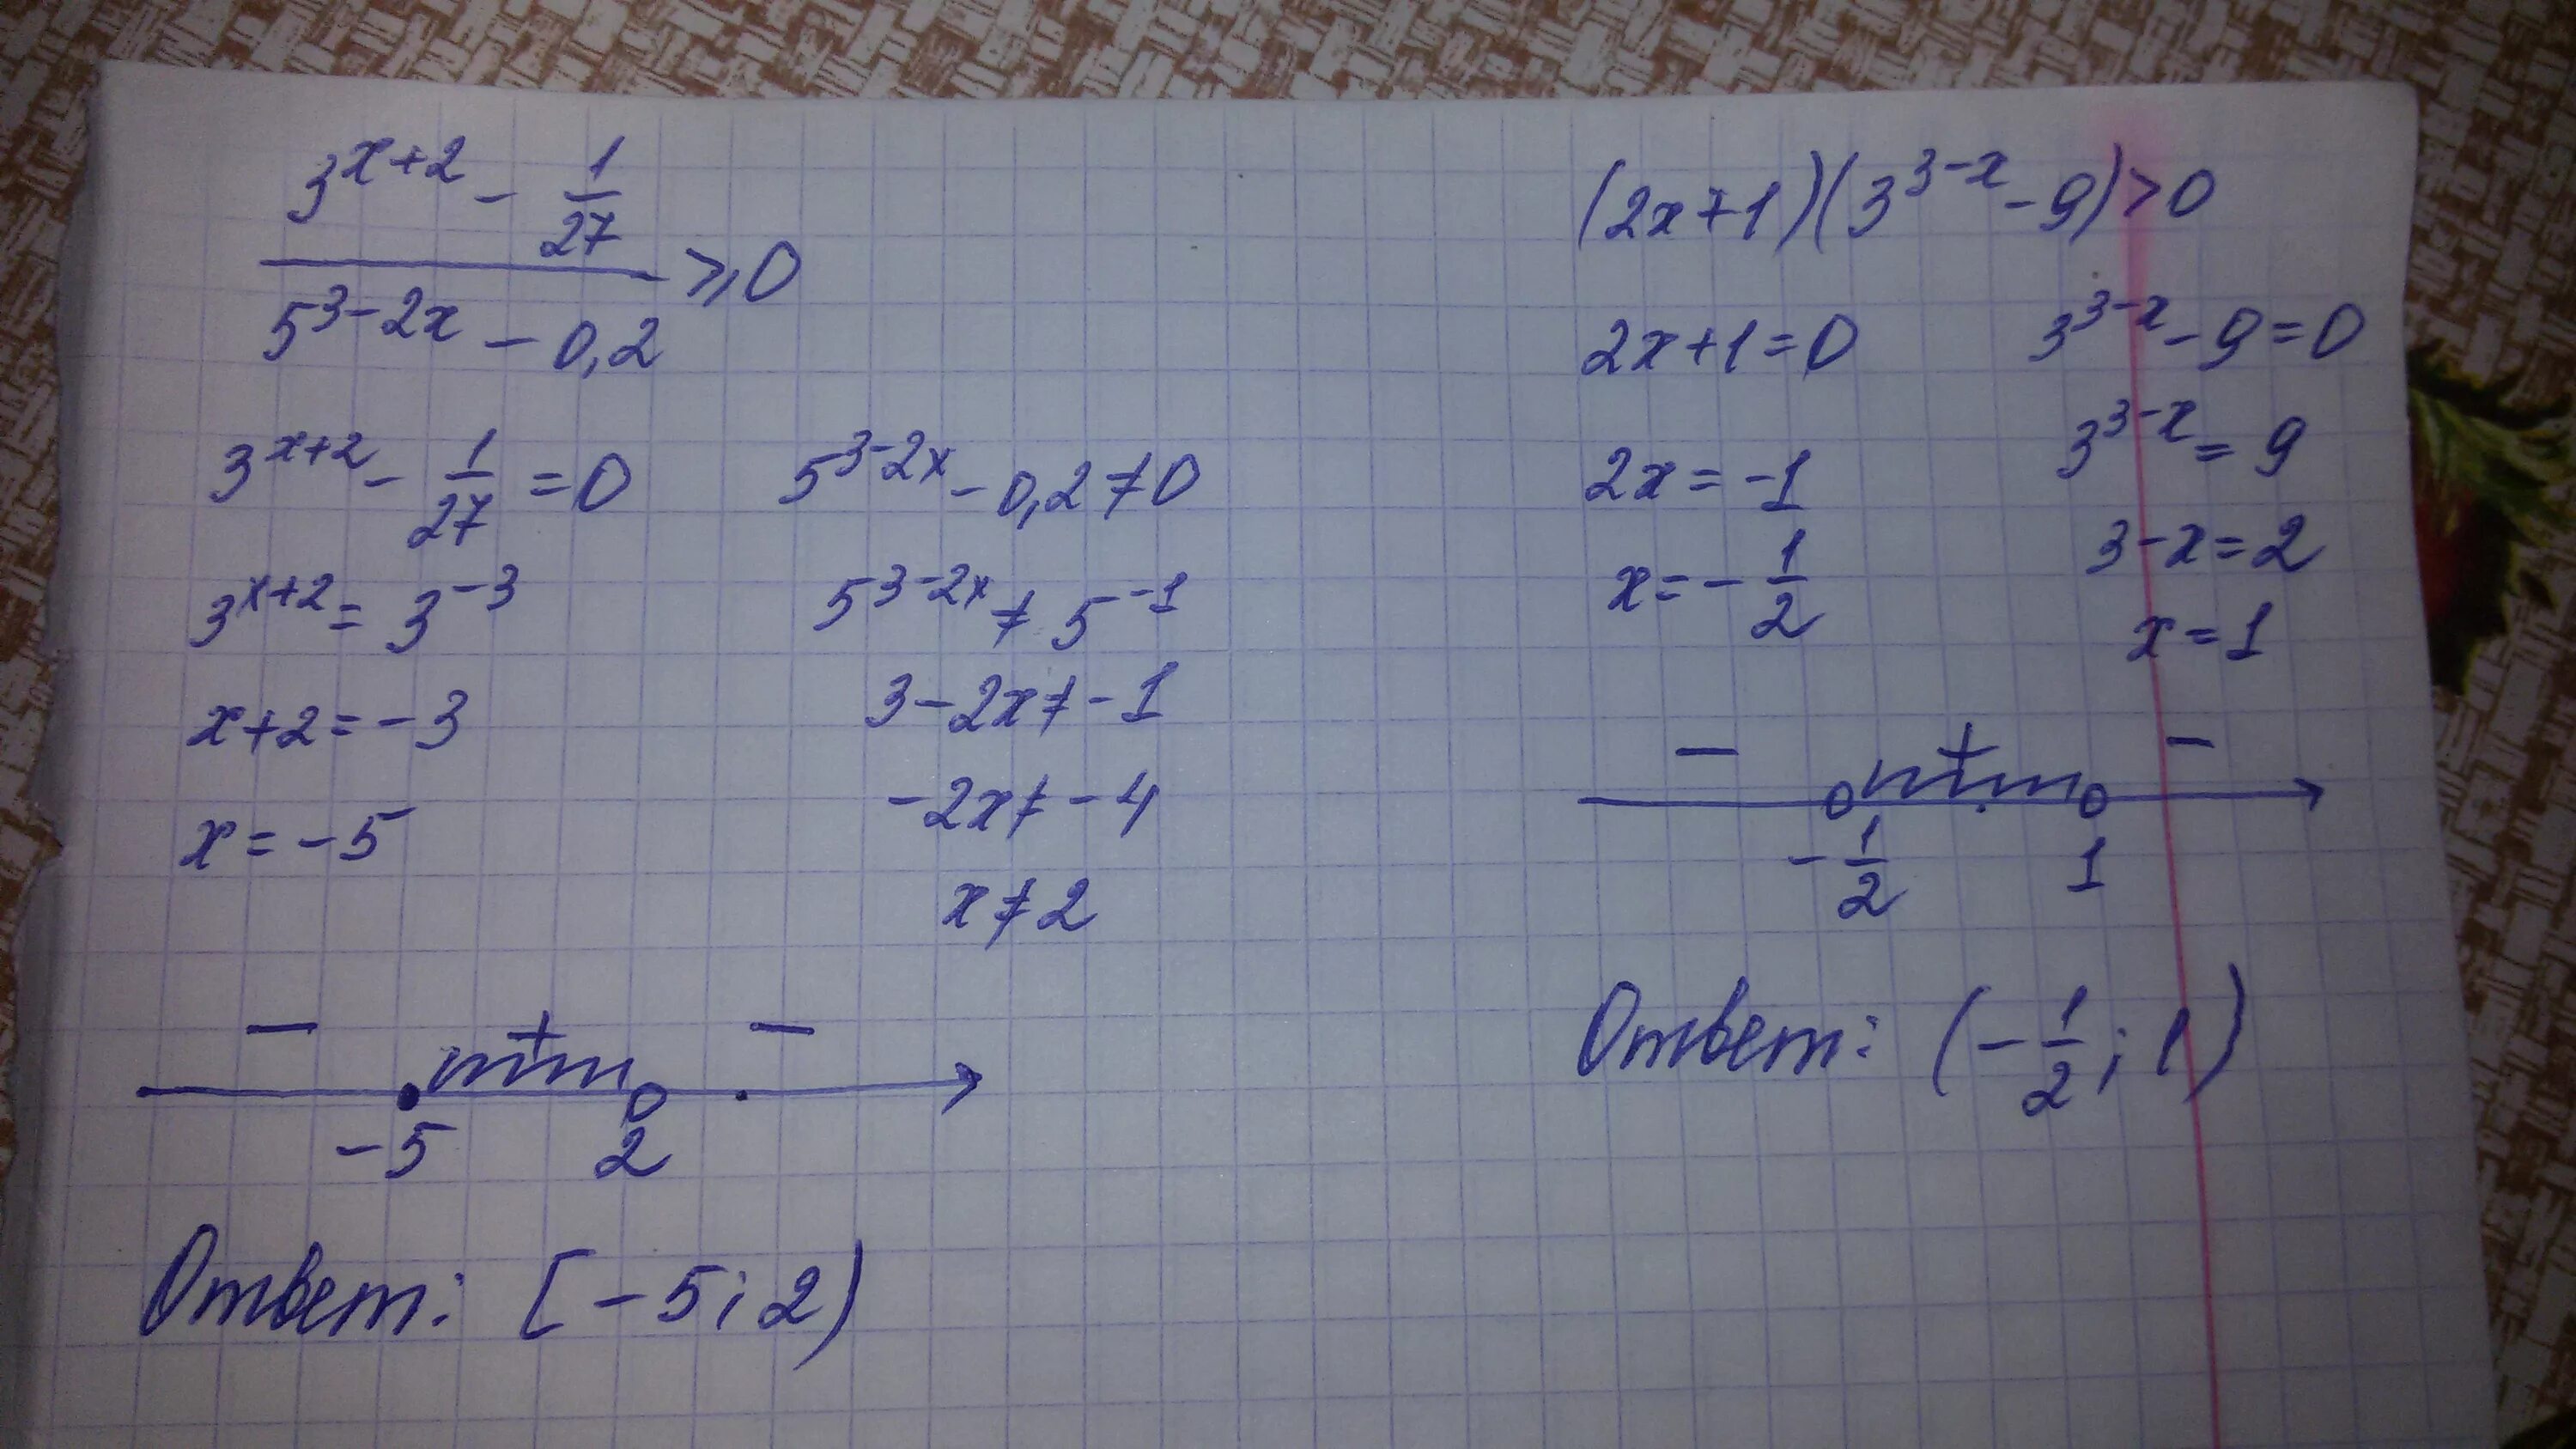 3^{x+2} - \frac{1}{27}
5^{3-2x} - 0,2 ⩾ 0
3^{x+2} - \frac{1}{27} = 0
3^{x+2} = 3^{-3}
x+2 = -3
x = -5
5^{3-2x} - 0,2 ≠ 0
5^{3-2x} ≠ 5^{-1}
3-2x ≠ -1
-2x ≠ -4
x ≠ 2
− + −
-5 2
Ответ: [-5; 2)
(2x+1)(3^{3-x} - 9) > 0
2x+1 = 0
2x = -1
x = -\frac{1}{2}
3^{3-x} - 9 = 0
3^{3-x} = 9
3-x = 2
x = 1
− + −
-\frac{1}{2} 1
Ответ: (-\frac{1}{2}; 1)